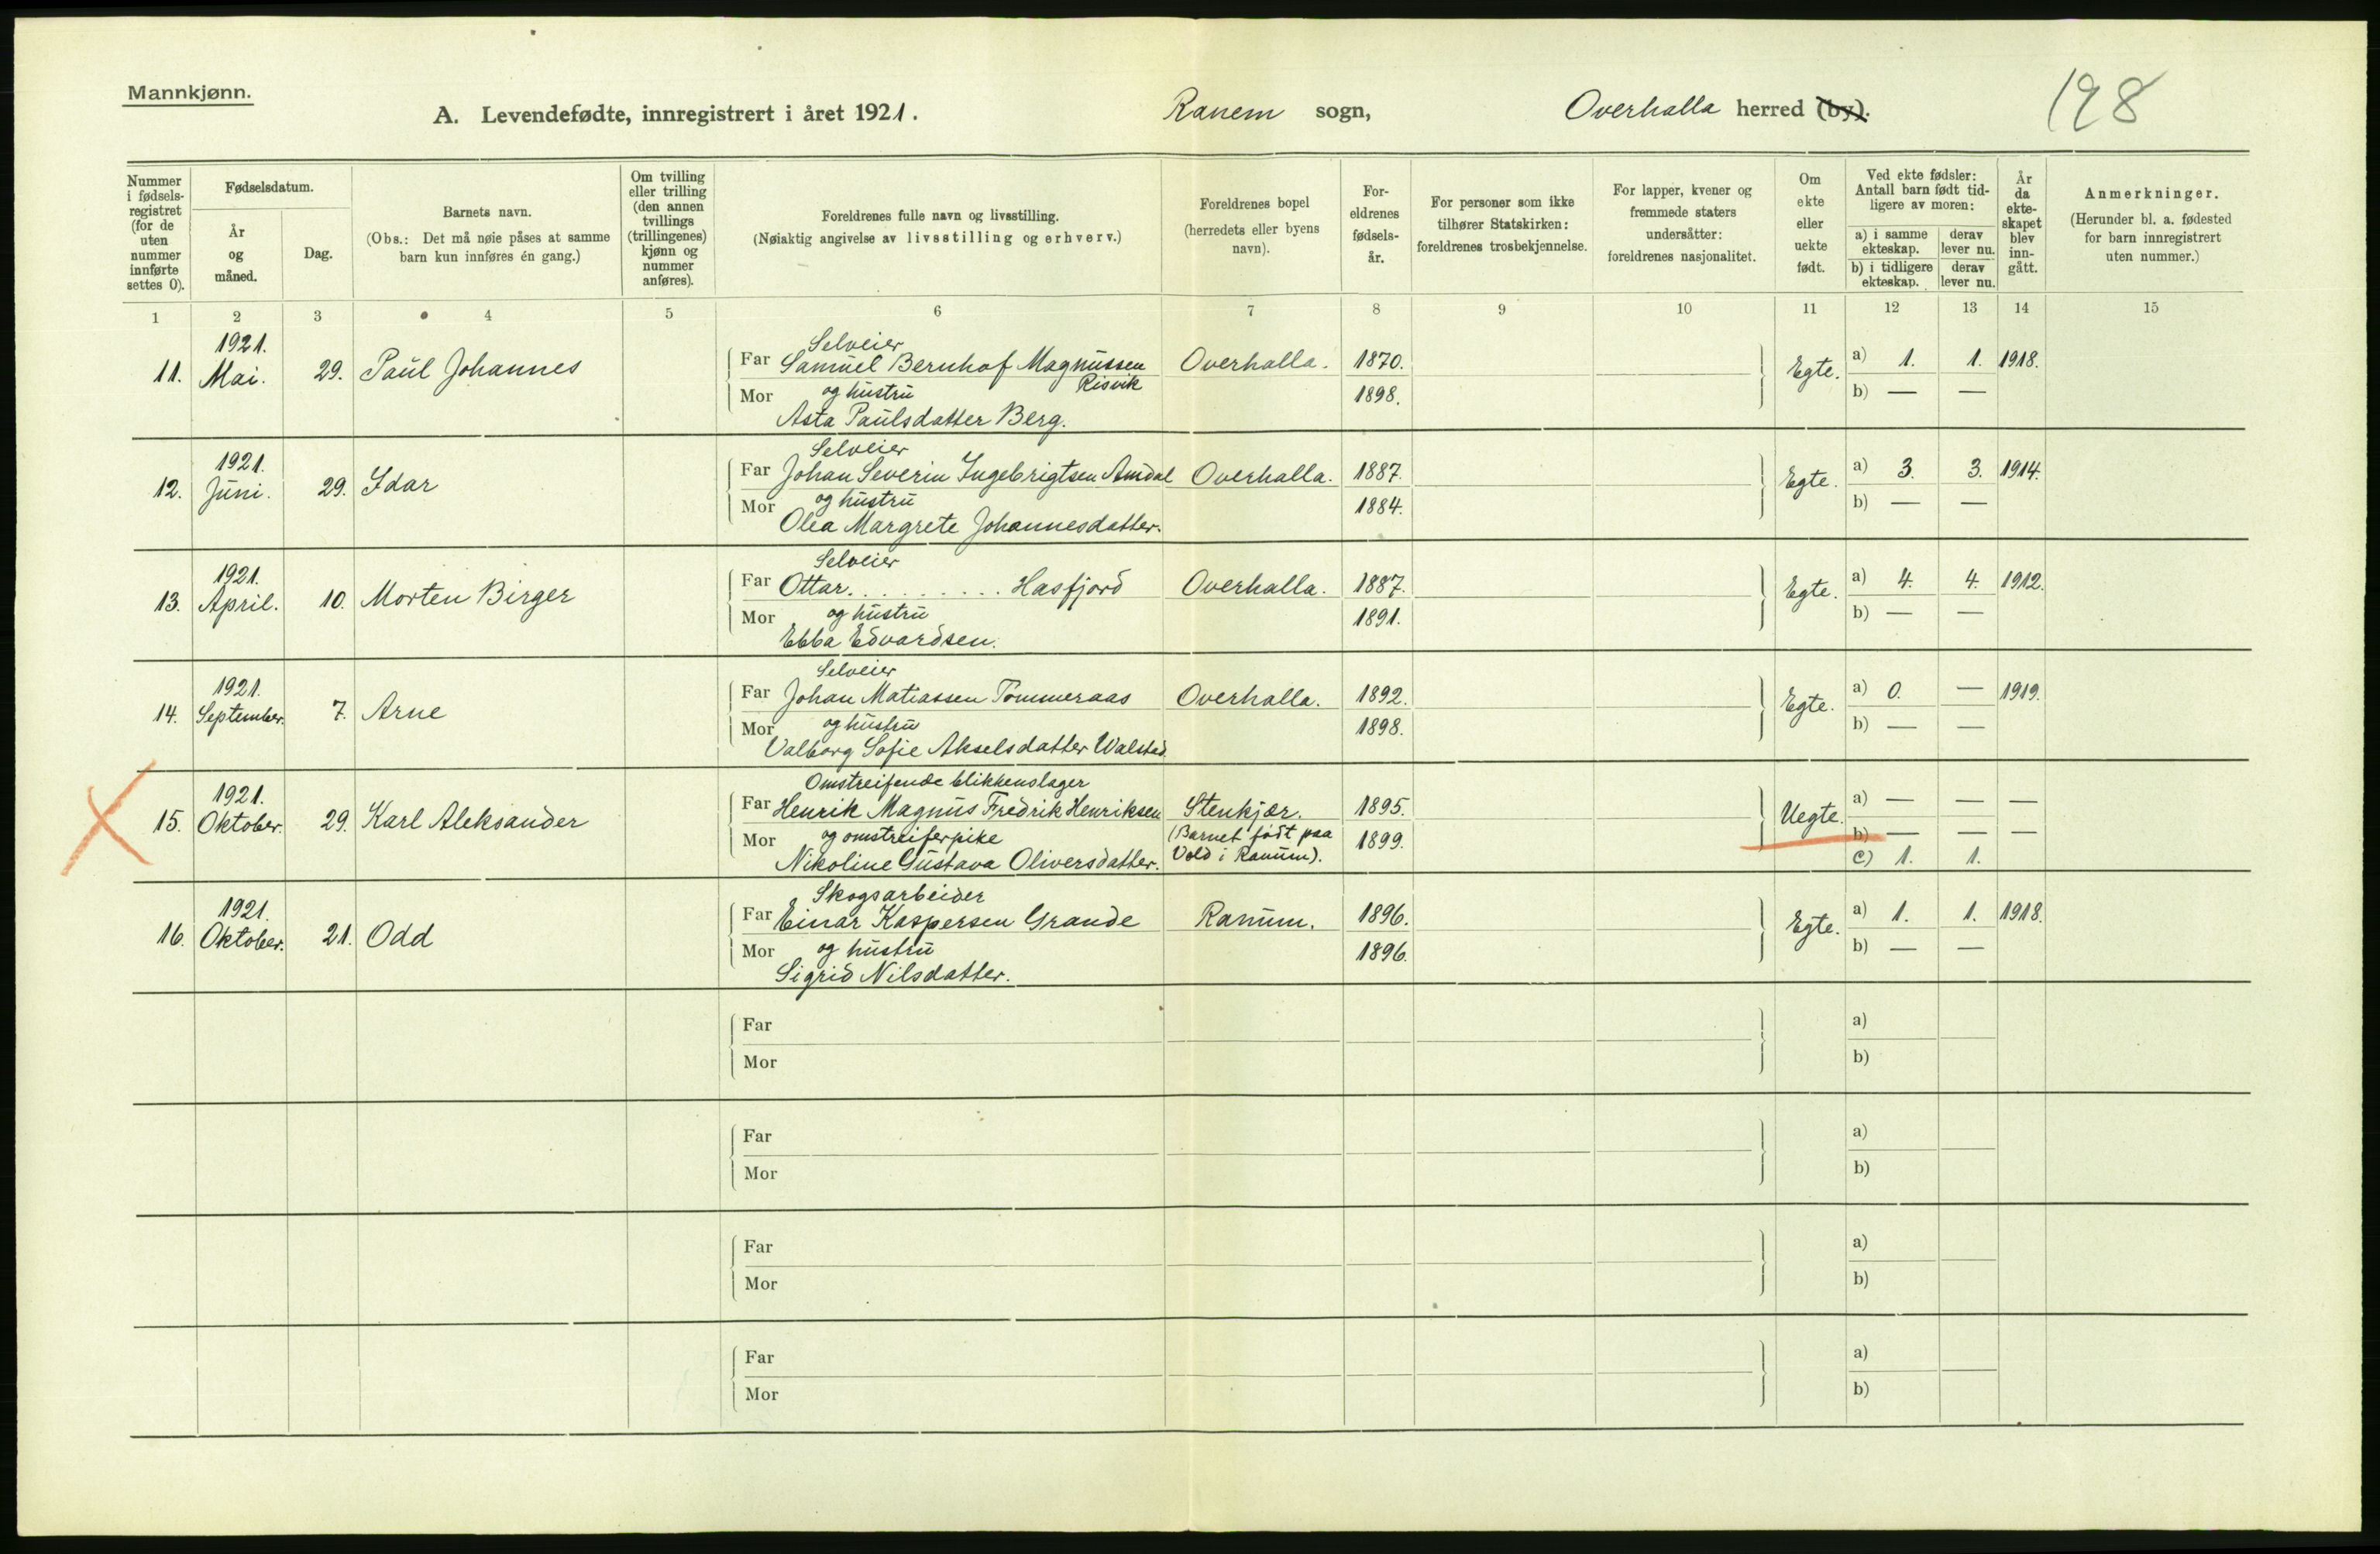 Mannkjønn.
A. Levendefødte, innregistrert i året 1921. Ranem sogn, Overhalla herred (by).
198
Nummer i fødsels-registret (for de uten nummer innførte settes 0).
Fødselsdatum.
År og måned.
Dag.
Barnets navn.
(Obs.: Det må nøie påses at samme barn kun innføres én gang.)
Om tvilling eller trilling (den annen tvillings (trillingenes) kjønn og nummer anføres).
Foreldrenes fulle navn og livsstilling.
(Nøiaktig angivelse av livsstilling og erhverv.)
Foreldrenes bopel (herredets eller byens navn).
For-eldrenes fødsels-år.
For personer som ikke tilhører Statskirken: foreldrenes trosbekjennelse.
For lapper, kvener og fremmede staters undersåtter: foreldrenes nasjonalitet.
Om ekte eller uekte født.
Ved ekte fødsler: Antall barn født tid-ligere av moren:
a) i samme ekteskap.
derav lever nu.
b) i tidligere ekteskap.
derav lever nu.
År da ekte-skapet blev inn-gått.
Anmerkninger.
(Herunder bl. a. fødested for barn innregistrert uten nummer.)
1 2 3 4 5 6 7 8 9 10 11 12 13 14 15
1921. Selveier
11. Mai. 29. Paul Johannes Far Samuel Bernhof Magnussen Overhalla. 1870. Egte. a) 1. 1. 1918.
Risvik
Mor og hustru 1898. b) — —
Asta Paulsdatter Berg.
1921. Selveier
12. Juni. 29. Idar Far Johan Severin Ingebrigtsen Amdal Overhalla. 1887. Egte. a) 3. 3. 1914.
Mor og hustru 1884. b) — —
Olea Margrete Johannesdatter.
1921. Selveier
13. April. 10. Morten Birger Far Ottar. . . . . . . . . . Hasfjord Overhalla. 1887. Egte. a) 4. 4. 1912.
Mor og hustru 1891. b) — —
Ebba Edvardsen.
1921. Selveier
14. September. 7. Arne Far Johan Matiassen Tømmeraas Overhalla. 1892. Egte. a) 0. — 1919.
Mor og hustru 1898. b) — —
Valborg Sofie Akselsdatter Walstad
1921. Omstreifende blikkenslager
15. Oktober. 29. Karl Aleksander Far Henrik Magnus Fredrik Henriksen Stenkjær. 1895. Uegte. a) — — —
Mor og omstreiferpike (Barnet født paa 1899. b) — — —
Nikoline Gustava Oliversdatter. Vold i Ranum). c) 1. 1.
1921. Skogsarbeider
16. Oktober. 21. Odd Far Einar Kaspersen Grande Ranum. 1896. Egte. a) 1. 1. 1918.
Mor og hustru 1896. b) — —
Sigrid Nilsdatter.
Far a)
Mor b)
Far a)
Mor b)
Far a)
Mor b)
Far a)
Mor b)